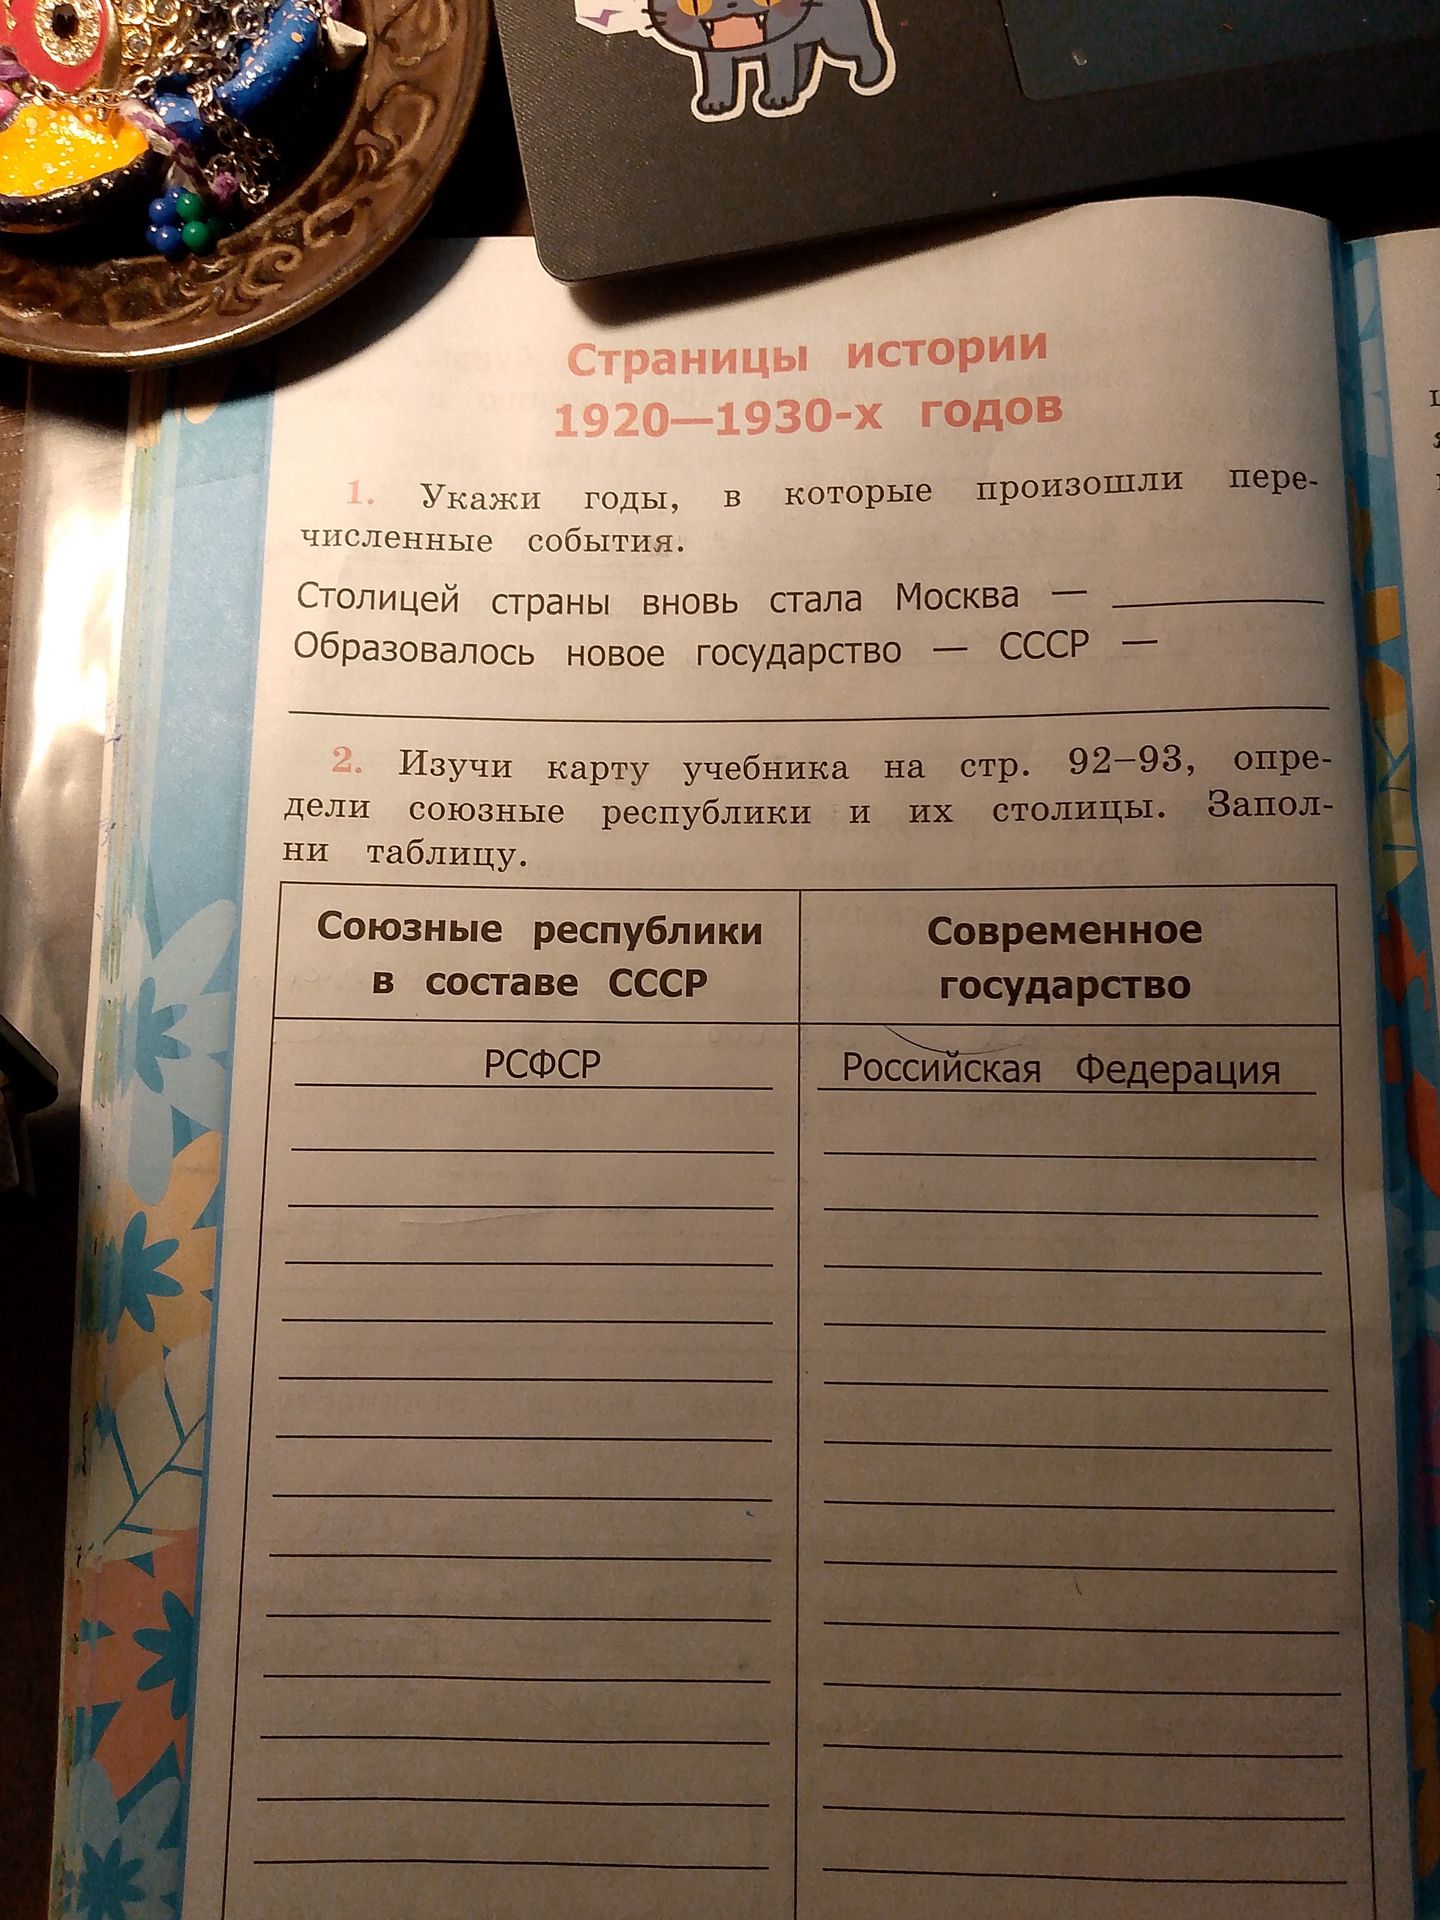 Страницы истории
1920—1930-х годов
1. Укажи годы, в которые произошли пере-
численные события.
Столицей страны вновь стала Москва —
Образовалось новое государство — СССР —
2. Изучи карту учебника на стр. 92–93, опре-
дели союзные республики и их столицы. Запол-
ни таблицу.
Союзные республики
в составе СССР
Современное
государство
РСФСР
Российская Федерация